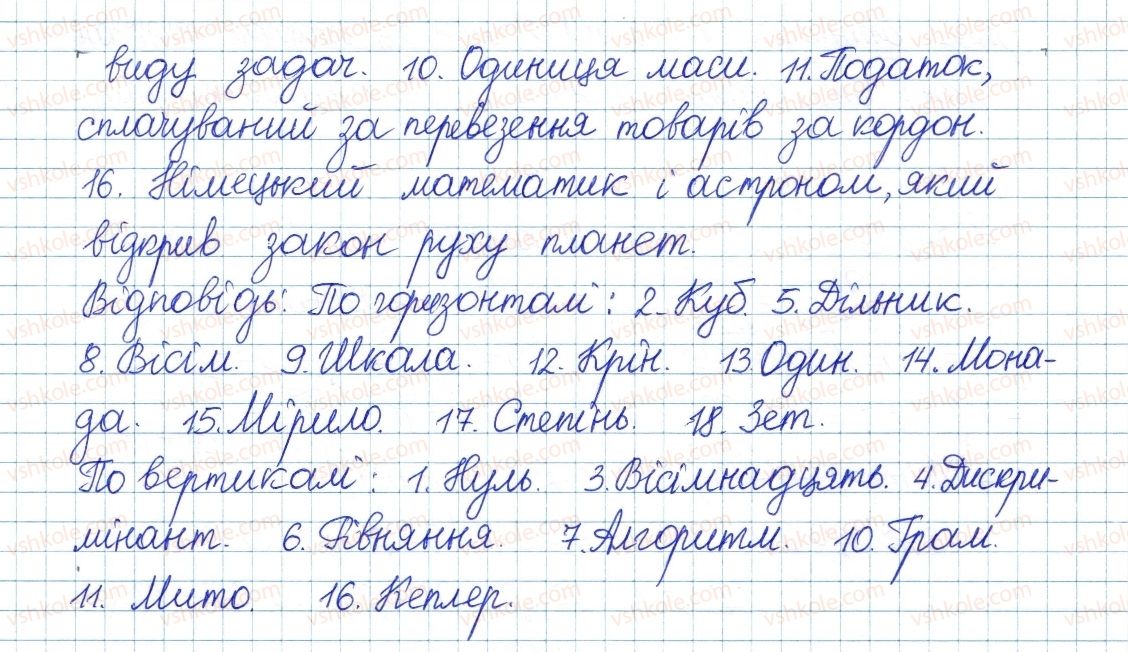 виду задач. 10. Одиниця маси. 11. Податок,
сплачуваний за перевезення товарів за кордон.
16. Німецький математик і астроном, який
відкрив закон руху планет.
Відповідь: По горизонталі: 2. Куб. 5. Дільник.
8. Вісім. 9. Шкала. 12. Крін. 13. Один. 14. Мона-
да. 15. Мірило. 17. Степінь. 18. Зет.
По вертикалі: 1. Нуль. 3. Вісімнадцять. 4. Дискри-
мінант. 6. Рівняння. 7. Алгоритм. 10. Грам.
11. Мито. 16. Кеплер.